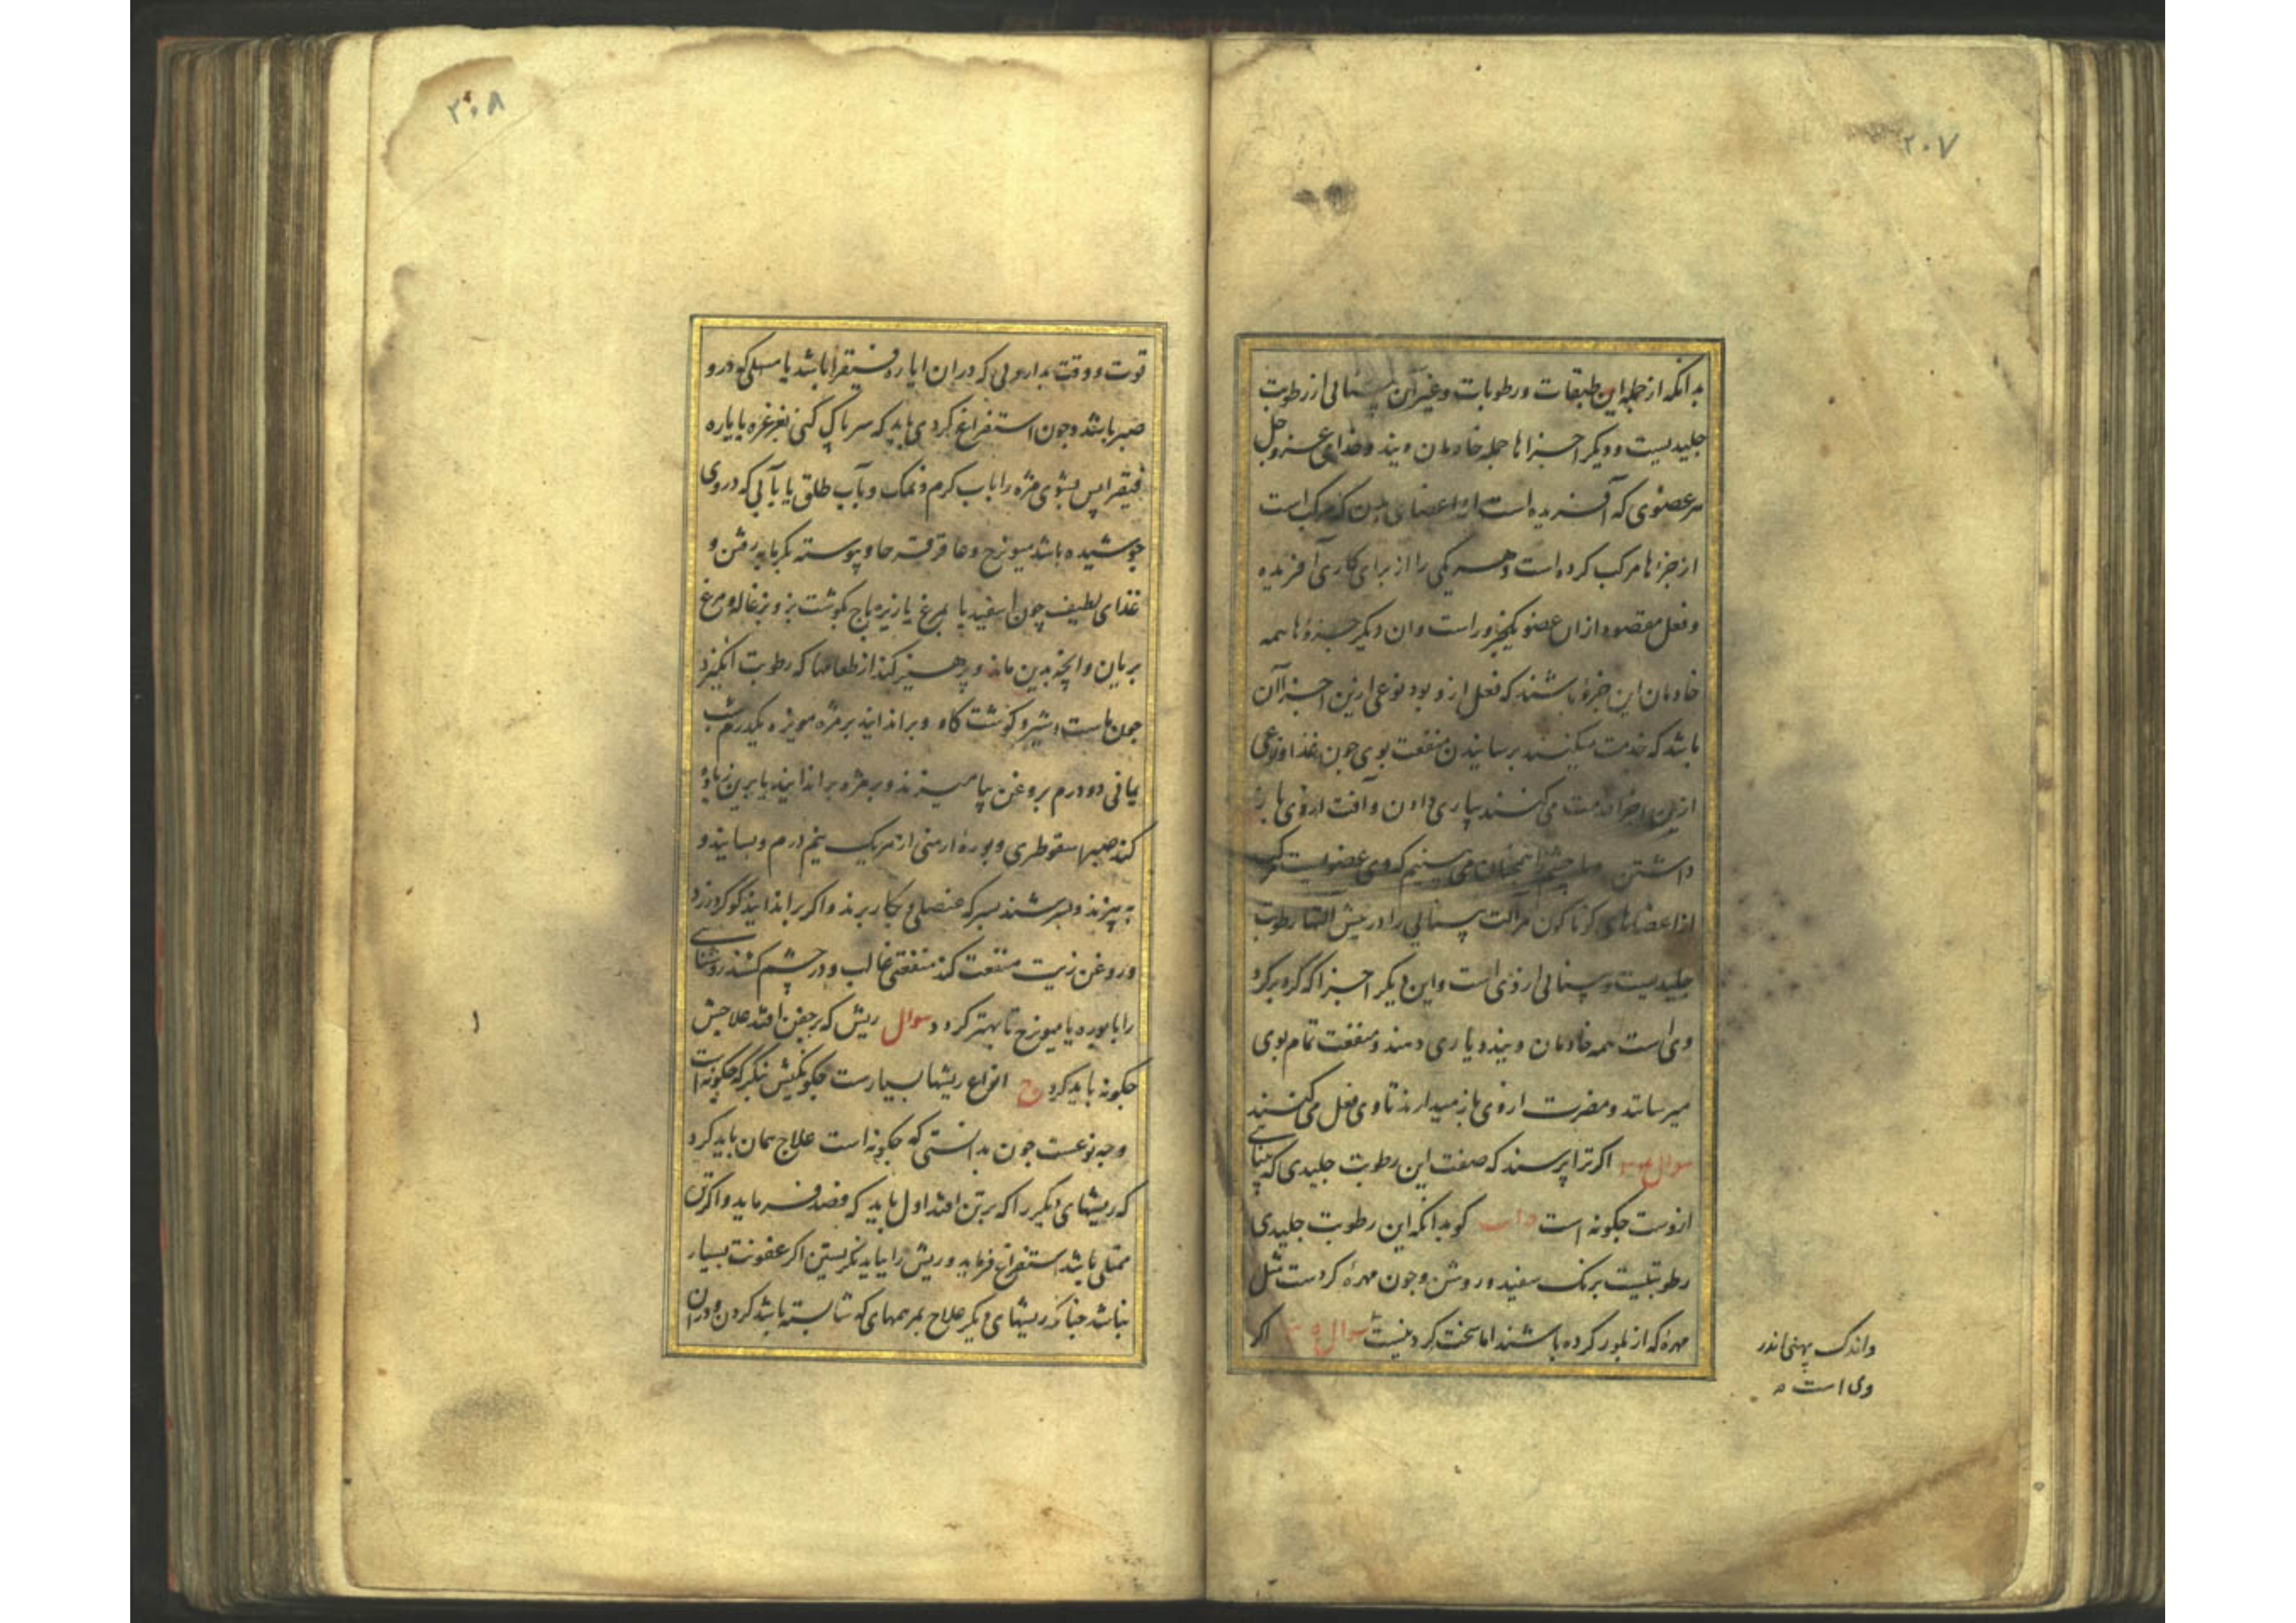 ۲۰۷
بدانکه از جمله این طبقات و رطوبات و غیر آن بینائی از رطوبت
جلیدیست و دیگر اجزاها جمله خادمان ویند و خدای عز و جل
هر عضوی که آفریده است از اعضای که مرکب است
از جزءها مرکب کرده است و هر یکی را از برای کاری آفریده
و فعل مقصود از ان عضو یکجزو راست و ان دیگر جزوها همه
خادمان این جزء باشند که فعل ازو بود نوعی ازین اجزا آن
باشد که خدمت میکنند برسانیدن منفعت بوی چون غذا و نوعی
ازین اجزا خدمت می کنند بیاری دادن و آفت ازوی باز
داشتن چشم را همچنان می بینیم که وی عضویست مرکب
از اعضاهای کوناکون مر آلت بینائی را و ریش التها رطوبت
جلیدیست و بینائی ازوی است و این دیگر اجزا که گرد برگرد
وی است همه خادمان ویند و یاری دهند و منفعت تمام بوی
میرسانند و مضرت ازوی باز میدارند تا وی فعل می کنند
سوال اکر ترا پرسند که صفت این رطوبت جلیدی که بینائی
ازوست چکونه است جواب کو بدانکه این رطوبت جلیدی
رطوبتیست برنک سفید و روشن و چون مهرهٔ کردست مثل
مهره که از بلور کرده باشند اما سخت کرد نیست سوال اکر
واندک پهنی اندر
وی است
۲۰۸
قوت و وقت بداروئی که دران ایاره فیقرا باشد یا مسهلی که درو
صبر باشد و چون استفراغ کردی باید که سر پاک کنی بغرغره بایاره
فیقرا پس بشوی مژه را باب کرم و نمک و بآب طلق یا بآبی که در وی
جوشیده باشد میویزج و عاقرقرحا و پیوسته بکرمابه رفتن و
غذای لطیف چون اسفیدبا بمرغ یا زیره باج بکوشت بز و بزغاله و مرغ
بریان و انچه بدین ماند و پرهیز کند از طعامها که رطوبت انکیزد
چون ماست و شیر و کوشت کاو و براندایند بر مژه مویزه یکدرم شب
یمانی دو درم بروغن بیامیزند و بر مژه براندایند یا برین زیاده
کند صبر سقوطری و بوره ارمنی از هر یک نیم درم و بسایند و
به بیزند و بسرشند بسرکه عنصلی و بکار برند و اکر براندایند کوکرد زرد
و روغن زیت منفعت کند منفعتی غالب و در چشم کشند روشنایی
را با بوره یا میویزج تا بهتر کردد سوال ریش که بر جفن افتد علاجش
چکونه باید کرد ج انواع ریشها بسیارست چکونکیش بنکر که چکونه است
و چه نوعست چون بدانستی که چکونه است علاج همان باید کرد
که ریشهای دیگر را که بر تن افتد اول باید که فصد فرماید و اکر تن
ممتلی باشد استفراغ فرماید و ریش را بباید نکریستن اکر عفونت بسیار
نباشد چنانکه ریشهای دیگر علاج بمرهمهای که شایسته باشد کردن و دران